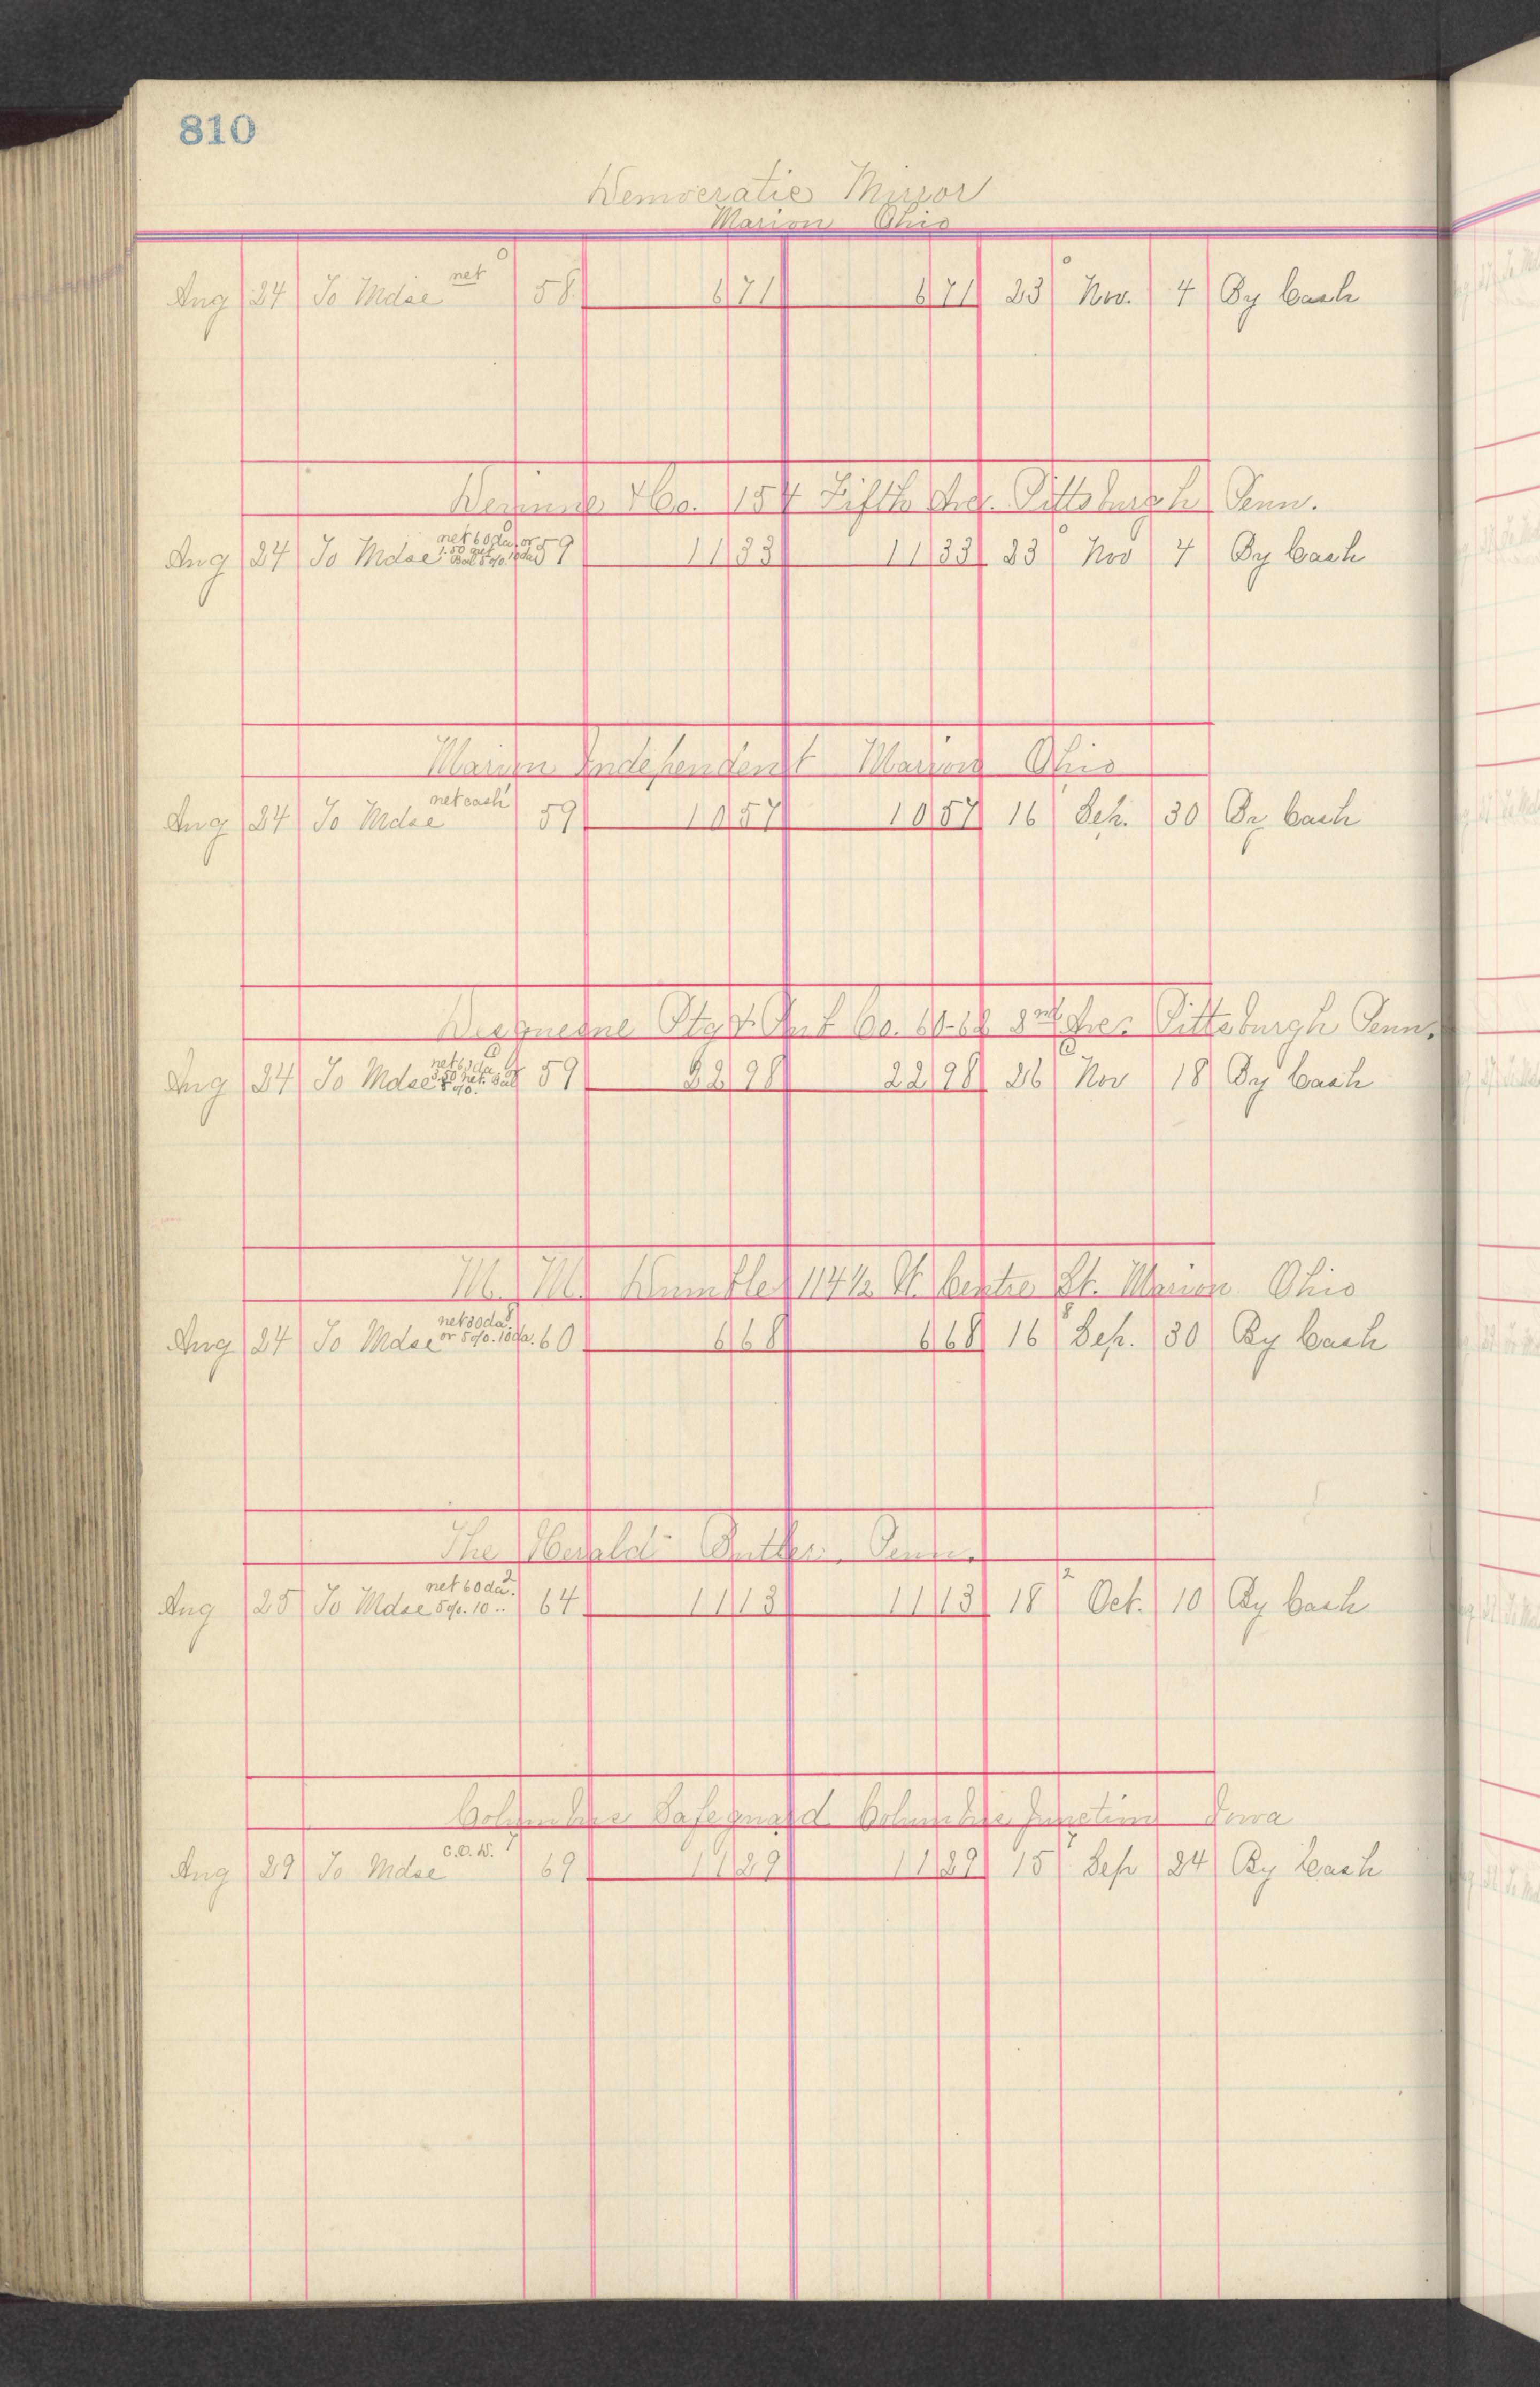 810
Democratic Mirror
Marion Ohio
Aug 24 To Mdse net 58 6 71 6 71 23 Nov. 4 By Cash
& Co. 154 Fifth Ave. Pittsburgh Penn.
Aug 24 To Mdse net 60 da. or 1.50 net Bal 5%. 10 da 59 11 33 11 33 23 Nov 4 By Cash
Marion Independent Marion Ohio
Aug 24 To Mdse net cash 59 10 57 10 57 16 Sep. 30 By Cash
Duquesne Ptg & Co. 3rd Ave. Pittsburgh Penn.
Aug 24 To Mdse net 60 da 3.50 net. Bal 5%. 59 22 98 22 98 26 Nov 18 By Cash
M. M. 114½ W. Centre St. Marion Ohio
Aug 24 To Mdse net 30 da. or 5%. 10 da. 60 6 68 6 68 16 Sep. 30 By Cash
The Herald Butler Penn.
Aug 25 To Mdse net 60 da. 5%. 10 .. 64 11 13 11 13 18 2 Oct. 10 By Cash
Columbus Safeguard Columbus Junction Iowa
Aug 29 To Mdse C.O.D. 69 11 29 11 29 15 Sep 24 By Cash